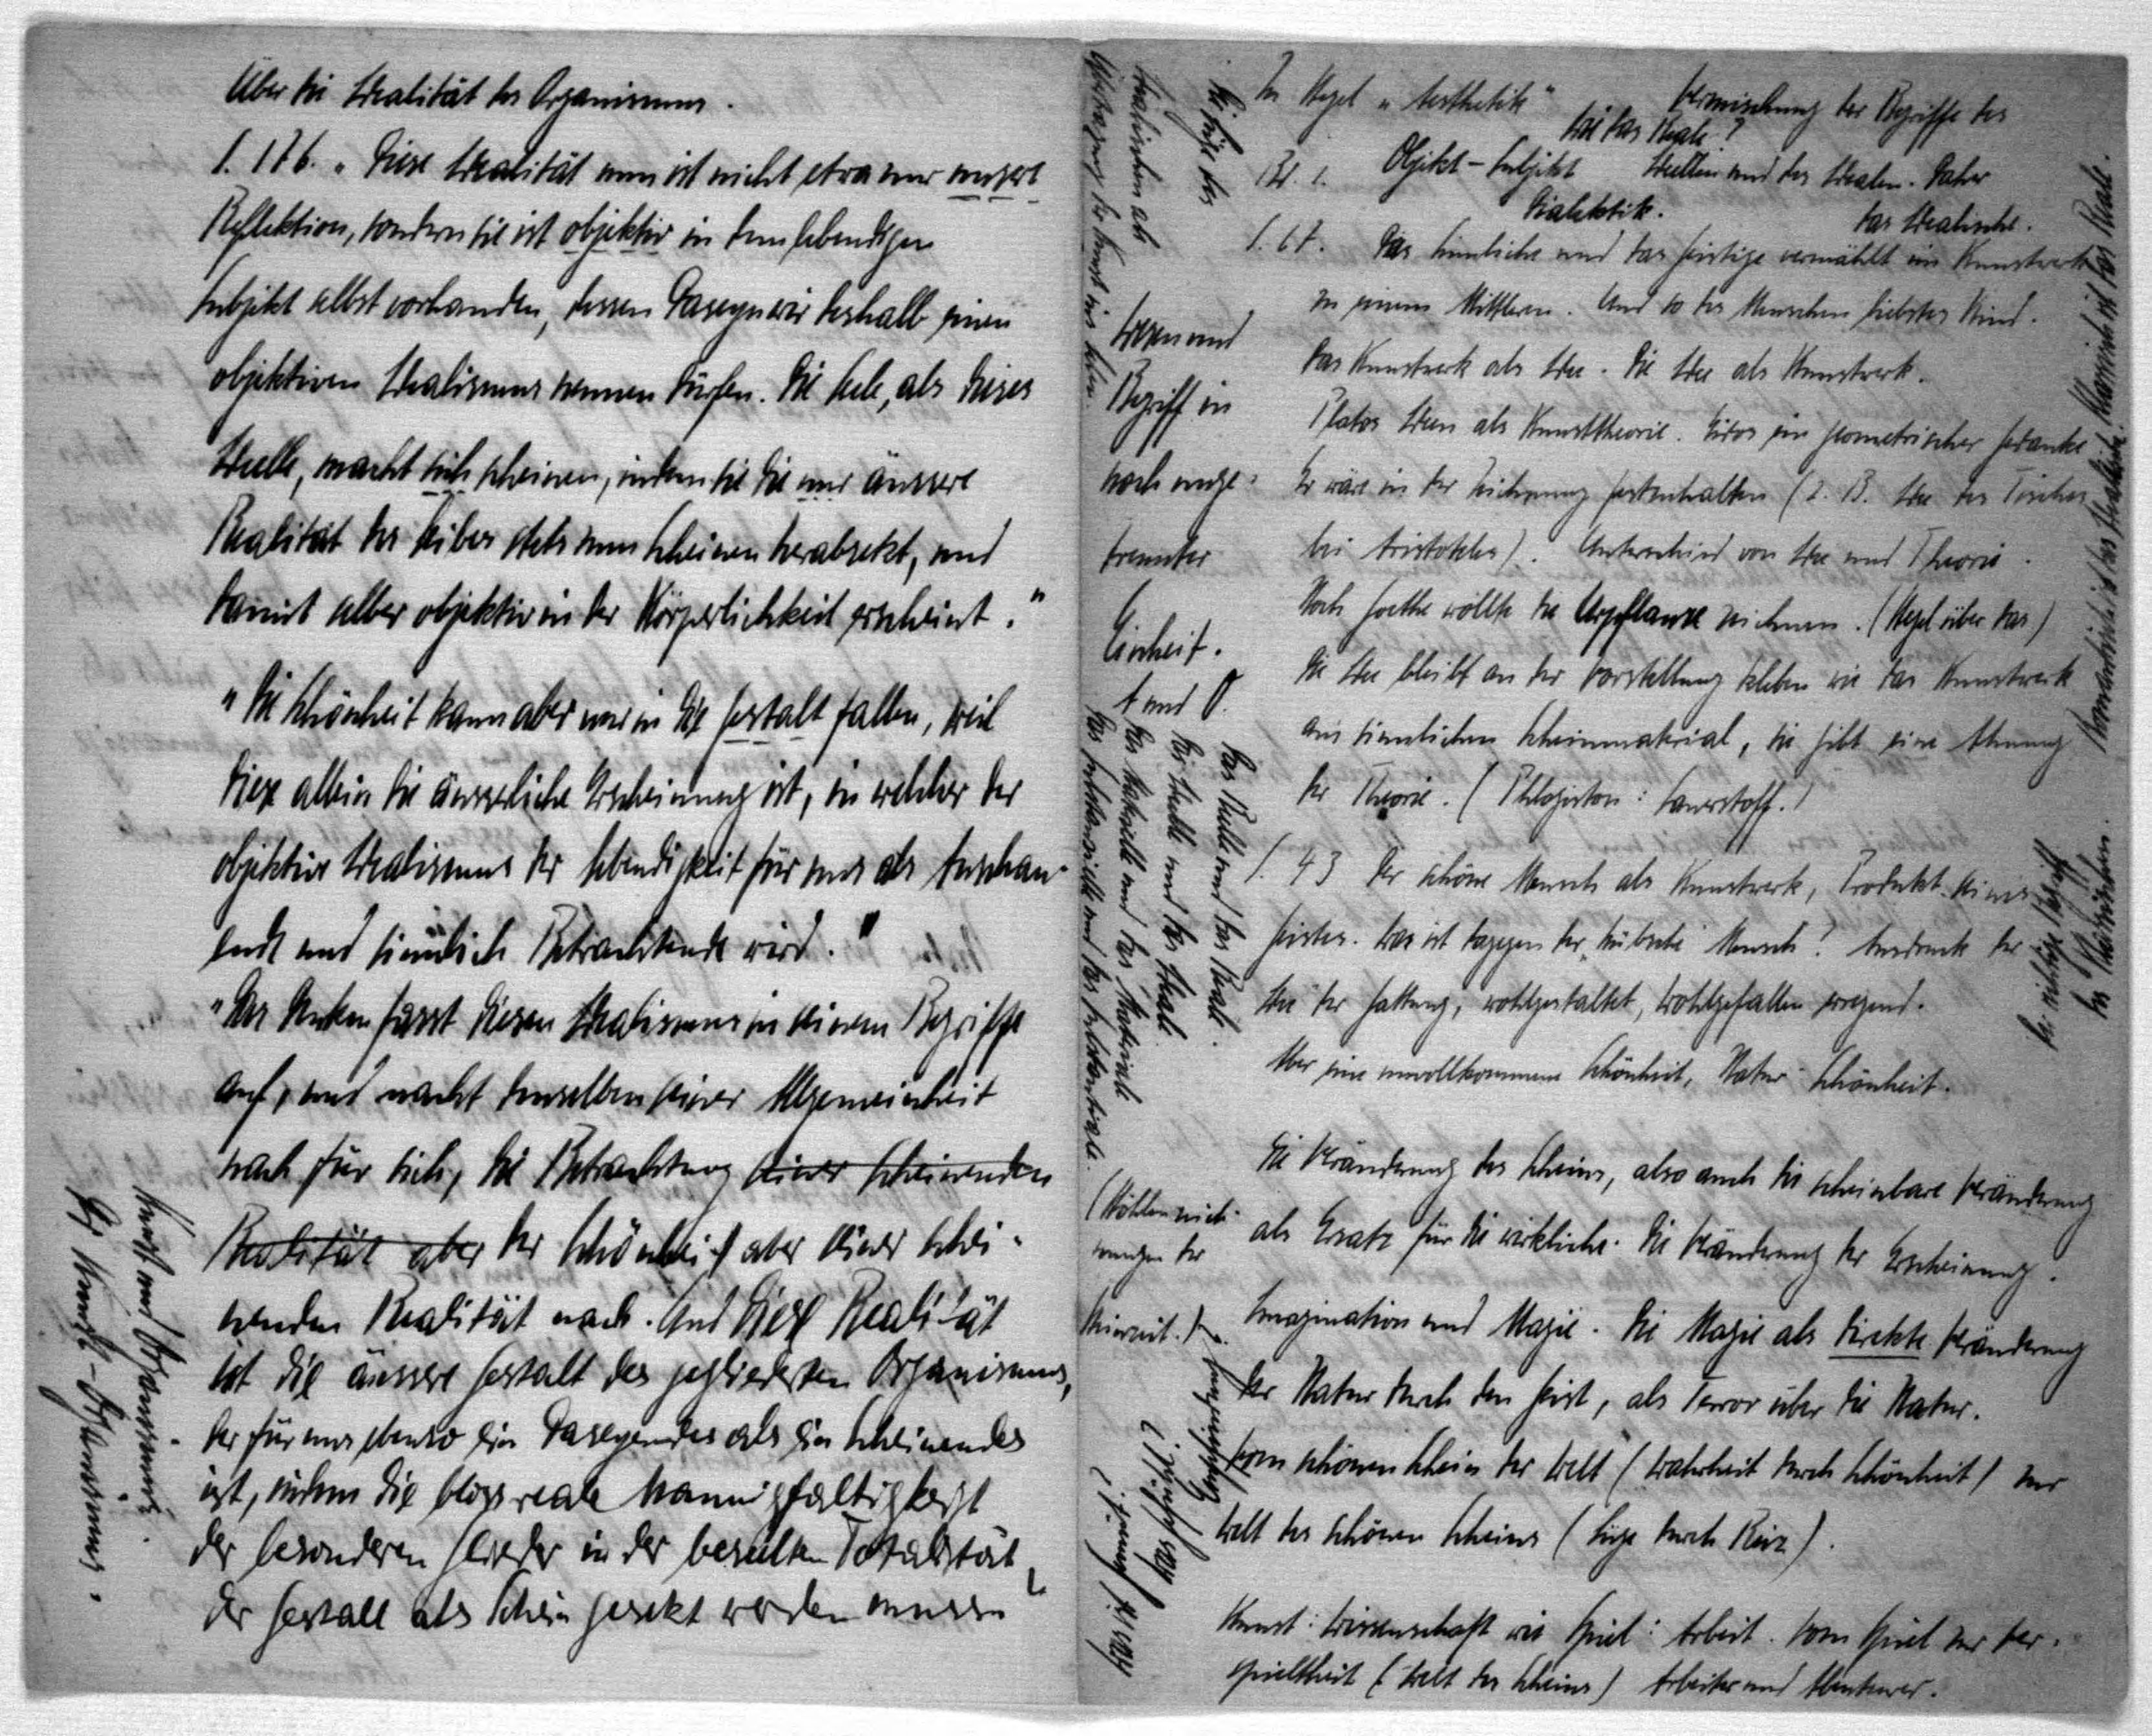 Über die Idealität des Organismus.
S. 176. „Diese Idealität nun ist nicht etwa nur unsere
Reflektion, sondern sie ist objektiv in dem lebendigen
Subjekt selbst vorhanden, dessen Daseyn wir deshalb einen
objektiven Idealismus nennen dürfen. Die Seele, als dieses
Ideelle, macht sich scheinen, indem sie die nur äussere
Realität des Leibes stets zum Scheinen herabsetzt, und
damit selber objektiv in der Körperlichkeit erscheint."
„Die Schönheit kann aber nur in die Gestalt fallen, weil
diese allein die äusserliche Erscheinung ist, in welcher der
objektive Idealismus der Lebendigkeit für uns als Anschau-
ende und sinnlich Betrachtende wird."
„Das Denken fasst diesen Idealismus in seinem Begriffe
auf, und macht denselben seiner Allgemeinheit
nach für sich, die Betrachtung seiner scheinenden
Realität aber der Schönheit aber seiner schei-
nenden Realität nach. Und diese Realität
ist die äussere Gestalt des gegliederten Organismus,
der für uns ebenso ein Daseyendes als ein Scheinendes
ist, indem die bloss reale Mannigfaltigkeit
der besonderen Glieder in der beseelten Totalität
der Gestalt als Schein gesetzt werden muss"
Kunst und Organismus.
Der Kunst-Organismus.
Zu Hegel „Aesthetik"
Vermischung der Begriffe des
wie das Reale?
Bd. 1. Objekt – Subjekt Ideellen und des Idealen. Daher
Dialektik. das Idealische.
S. 67. Das Sinnliche und das Geistige vermählt im Kunstwerk
zu einem Mittleren. Und so des Menschen liebstes Kind.
Das Kunstwerk als Idee. Die Idee als Kunstwerk.
Platos Ideen als Kunsttheorie. Eidos ein geometrischer Gedanke
Er wäre in der Zeichnung festzuhalten (z. B. Idee des Tisches
bei Aristoteles). Unterschied von Idee und Theorie.
Noch Goethe wollte die Urpflanze zeichnen. (Hegel über das)
Die Idee bleibt an der Vorstellung kleben wie das Kunstwerk
am sinnlichen Scheinmaterial, sie gibt eine Ahnung
der Theorie. (Phlogiston: Sauerstoff.)
S. 43 Der schöne Mensch als Kunstwerk, Produkt seines
Geistes. Was ist dagegen der „hübsche" Mensch? Ausdruck der
Idee der Gattung, wohlgestaltet, Wohlgefallen erregend.
Aber eine unvollkommene Schönheit, Natur-Schönheit.
Die Veränderung des Scheins, also auch die scheinbare Veränderung
als Ersatz für die wirkliche. Die Veränderung der Erscheinung.
Imagination und Magie. Die Magie als direkte Veränderung
der Natur durch den Geist, als Terror über die Natur.
Vom schönen Schein der Welt (Wahrheit durch Schönheit) zur
Welt des schönen Scheins (Lüge durch Reiz).
Kunst: Wissenschaft wie Spiel: Arbeit. Vom Spiel zur Ver-
spieltheit (Welt des Scheins) Arbeiter und Abenteurer.
Wesen und
Begriff in
noch unge-
trennter
Einheit.
A und O.
Das Reelle und das Reale.
Das Ideelle und das Ideale.
Das Materielle und das Materiale
Das Substanzielle und das Substantiale.
(Höhlenzeich-
nungen der
Eiszeit.)
Idealischen als
Übertragung der Kunst ins Leben.
Romantisch ist das Idealische. Klassisch ist das Reale.
Der richtige Begriff
des Klassischen.